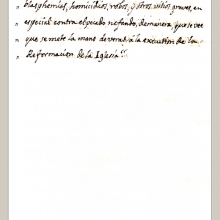 " blasphemias, homicidios, robos, y otros vicios graves, en
" especial contra el pecado nefando, de manera, que se vee
" que se mete la mano de veras à la execution de la
" Reformacion de la Iglesia."